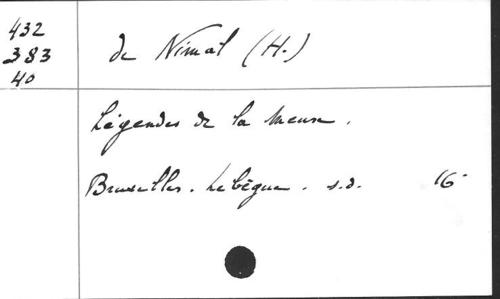 432
383
40
de Nimal (H.)
Légendes de la Meuse.
Bruxelles. Lebègue. s.d. 16°